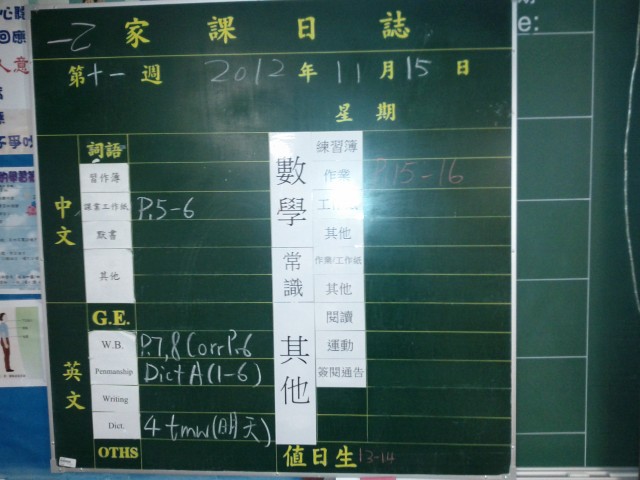 一乙 家課日誌
第十一週 2012年11月15日
星期
中文
詞語
習作簿
課堂工作紙 P.5-6
默書
其他
英文
G.E.
W.B. P.7,8 Corr P.6
Penmanship Dict A (1-6)
Writing
Dict. 4 tmw (明天)
OTHS
數學
練習簿
作業 P.15-16
工作紙
其他
常識
作業/工作紙
其他
其他
閱讀
運動
簽閱通告
值日生 13-14
心
回應
人意
e: